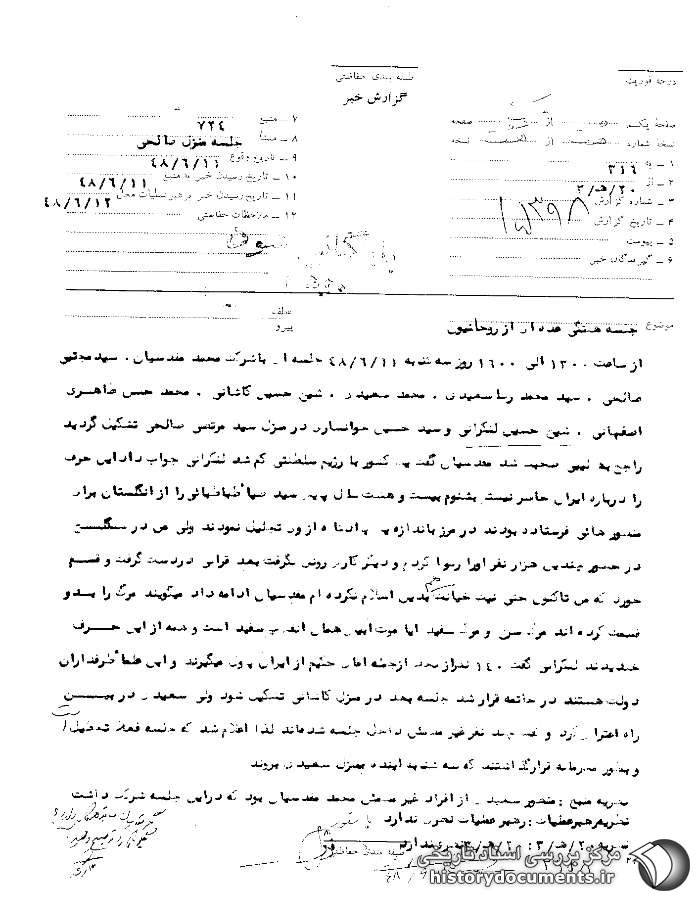 درجه فوریت
طبقه بندی حفاظتی
گزارش خبر
صفحه یکم از صفحه
نسخه شماره از نسخه
۱ ـ به ۳۱۶
۲ ـ از ۲۰/هـ/۳
۳ ـ شماره گزارش
۴ ـ تاریخ گزارش
۵ ـ پیوست
۶ ـ گیرندگان خبر
۷ ـ منبع ۷۲۴
۸ ـ منشأ جلسه منزل صالحی
۹ ـ تاریخ وقوع ۴۸/۶/۱۱
۱۰ ـ تاریخ رسیدن خبر به منبع ۴۸/۶/۱۱
۱۱ ـ تاریخ رسیدن خبر به رهبر عملیات محل ۴۸/۶/۱۲
۱۲ ـ ملاحظات حفاظتی
عطف
پیرو
موضوع جلسه هفتگی عده ای از روحانیون
از ساعت ۱۳۰۰ الی ۱۶۰۰ روز سه شنبه ۴۸/۶/۱۱ جلسه ای با شرکت محمد مقدسیان ، سید مجتبی
صالحی ، سید محمد رضا سعیدی ، محمد سعیدی ، شیخ حسین کاشانی ، محمد حسن طاهری
اصفهانی ، شیخ حسین لنکرانی و سید حسین خوانساری در منزل سید مرتضی صالحی تشکیل گردید
راجع به لیبی صحبت شد مقدسیان گفت یک کشور با رژیم سلطنتی کم شد لنکرانی جواب داد این حرف
را درباره ایران حاضر نیستم بشنوم بیست و هشت سال پیش سید ضیاء طباطبائی را از انگلستان برای
منظور هائی فرستاده بودند در مرز باندازه یک پادشاه از وی تجلیل نمودند ولی من در سنگلج
در حضور چندین هزار نفر او را رسوا کردم و دیگر کار او رونق نگرفت بعد قرآنی در دست گرفت و قسم
خورد که من تاکنون حتی نیت خیانت هم بدین اسلام نکرده ام مقدسیان ادامه داد میگویند مرگ را بدو
قسمت کرده اند مرگ سرخ و مرگ سفید آیا موت ابیض همان انقلاب سفید است و همه از این حرف
خندیدند لنکرانی گفت ۱۴۰ نفر از نجف از جمله آقای حکیم از ایران پول میگیرند و این طلاها طرفداران
دولت هستند در خاتمه قرار شد جلسه بعد در منزل کاشانی تشکیل شود ولی سعیدی در بین
راه اعتراض کرد و گفت چند نفر غیر مطمئن داخل جلسه شده‌اند لذا اعلام شد که جلسه فعلا تعطیل است
و بطور محرمانه قرار گذاشتند که سه شنبه آینده بمنزل سعیدی بروند
نظریه منبع : منظور سعیدی از افراد غیر مطمئن محمد مقدسیان بود که در این جلسه شرکت داشت
نظریه رهبر عملیات : رهبر عملیات نظری ندارد
نظریه ۲۰/هـ/۳ : ۲۰/هـ/۳ نظری ندارد
طبقه بندی حفاظتی
مرکز بررسی اسناد تاریخی
historydocuments.ir